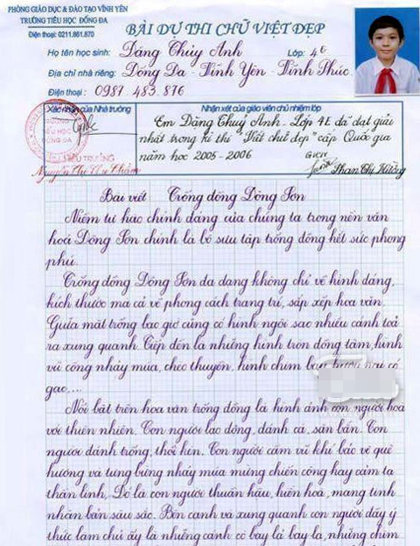 PHÒNG GIÁO DỤC & ĐÀO TẠO VĨNH YÊN
TRƯỜNG TIỂU HỌC ĐỐNG ĐA
Điện thoại: 0211.861.870
BÀI DỰ THI CHỮ VIỆT ĐẸP
Họ tên học sinh: Dặng Thúy Anh Lớp: 4E
Địa chỉ nhà riêng: Đống Đa - Vĩnh Yên - Vĩnh Phúc
Điện thoại: 0987 483 876
Xác nhận của Nhà trường
Nhận xét của giáo viên chủ nhiệm lớp
Em Dặng Thuý Anh - Lớp 4E đã đạt giải
nhất trong kì thi "Viết chữ đẹp" cấp Quốc gia
năm học 2005 - 2006
GVCN
Phan Thị Hường
HIỆU TRƯỞNG
Nguyễn Thị Thu Thắm
Bài viết Trống đồng Đông Sơn
Niềm tự hào chính đáng của chúng ta trong nền văn
hoá Đông Sơn chính là bộ sưu tập trống đồng hết sức phong
phú.
Trống đồng Đông Sơn đa dạng không chỉ về hình dáng,
kích thước mà cả về phong cách trang trí, sắp xếp hoa văn.
Giữa mặt trống bao giờ cũng có hình ngôi sao nhiều cánh toả
ra xung quanh. Tiếp đến là những hình tròn đồng tâm, hình
vũ công nhảy múa, chèo thuyền, hình chim bay, hươu nai có
gạc....
Nổi bật trên hoa văn trống đồng là hình ảnh con người hoà
với thiên nhiên. Con người lao động, đánh cá, săn bắn. Con
người đánh trống, thổi kèn. Con người cầm vũ khí bảo vệ quê
hương và tưng bừng nhảy múa mừng chiến công hay cảm tạ
thần linh. Đó là con người thuần hậu, hiền hoà, mang tính
nhân bản sâu sắc. Bên cạnh và xung quanh con người đầy ý
thức làm chủ ấy là những cánh cò bay lả bay la, những chim